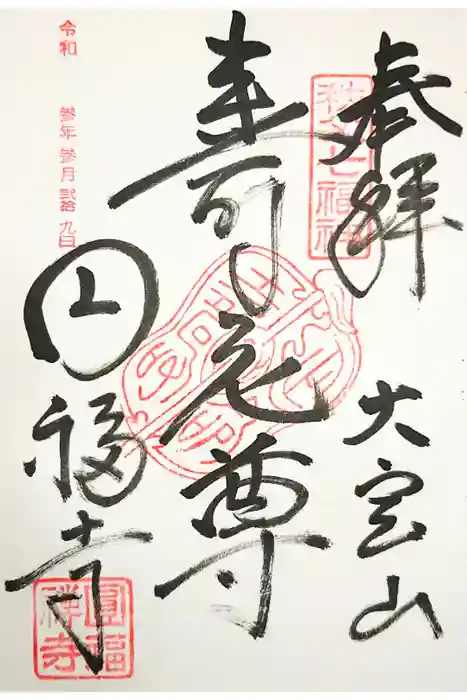 奉拝
秩父七福神
大宝山
寿老尊
令和 参年 参月 弐拾 九日
円福寺
圓福禅寺